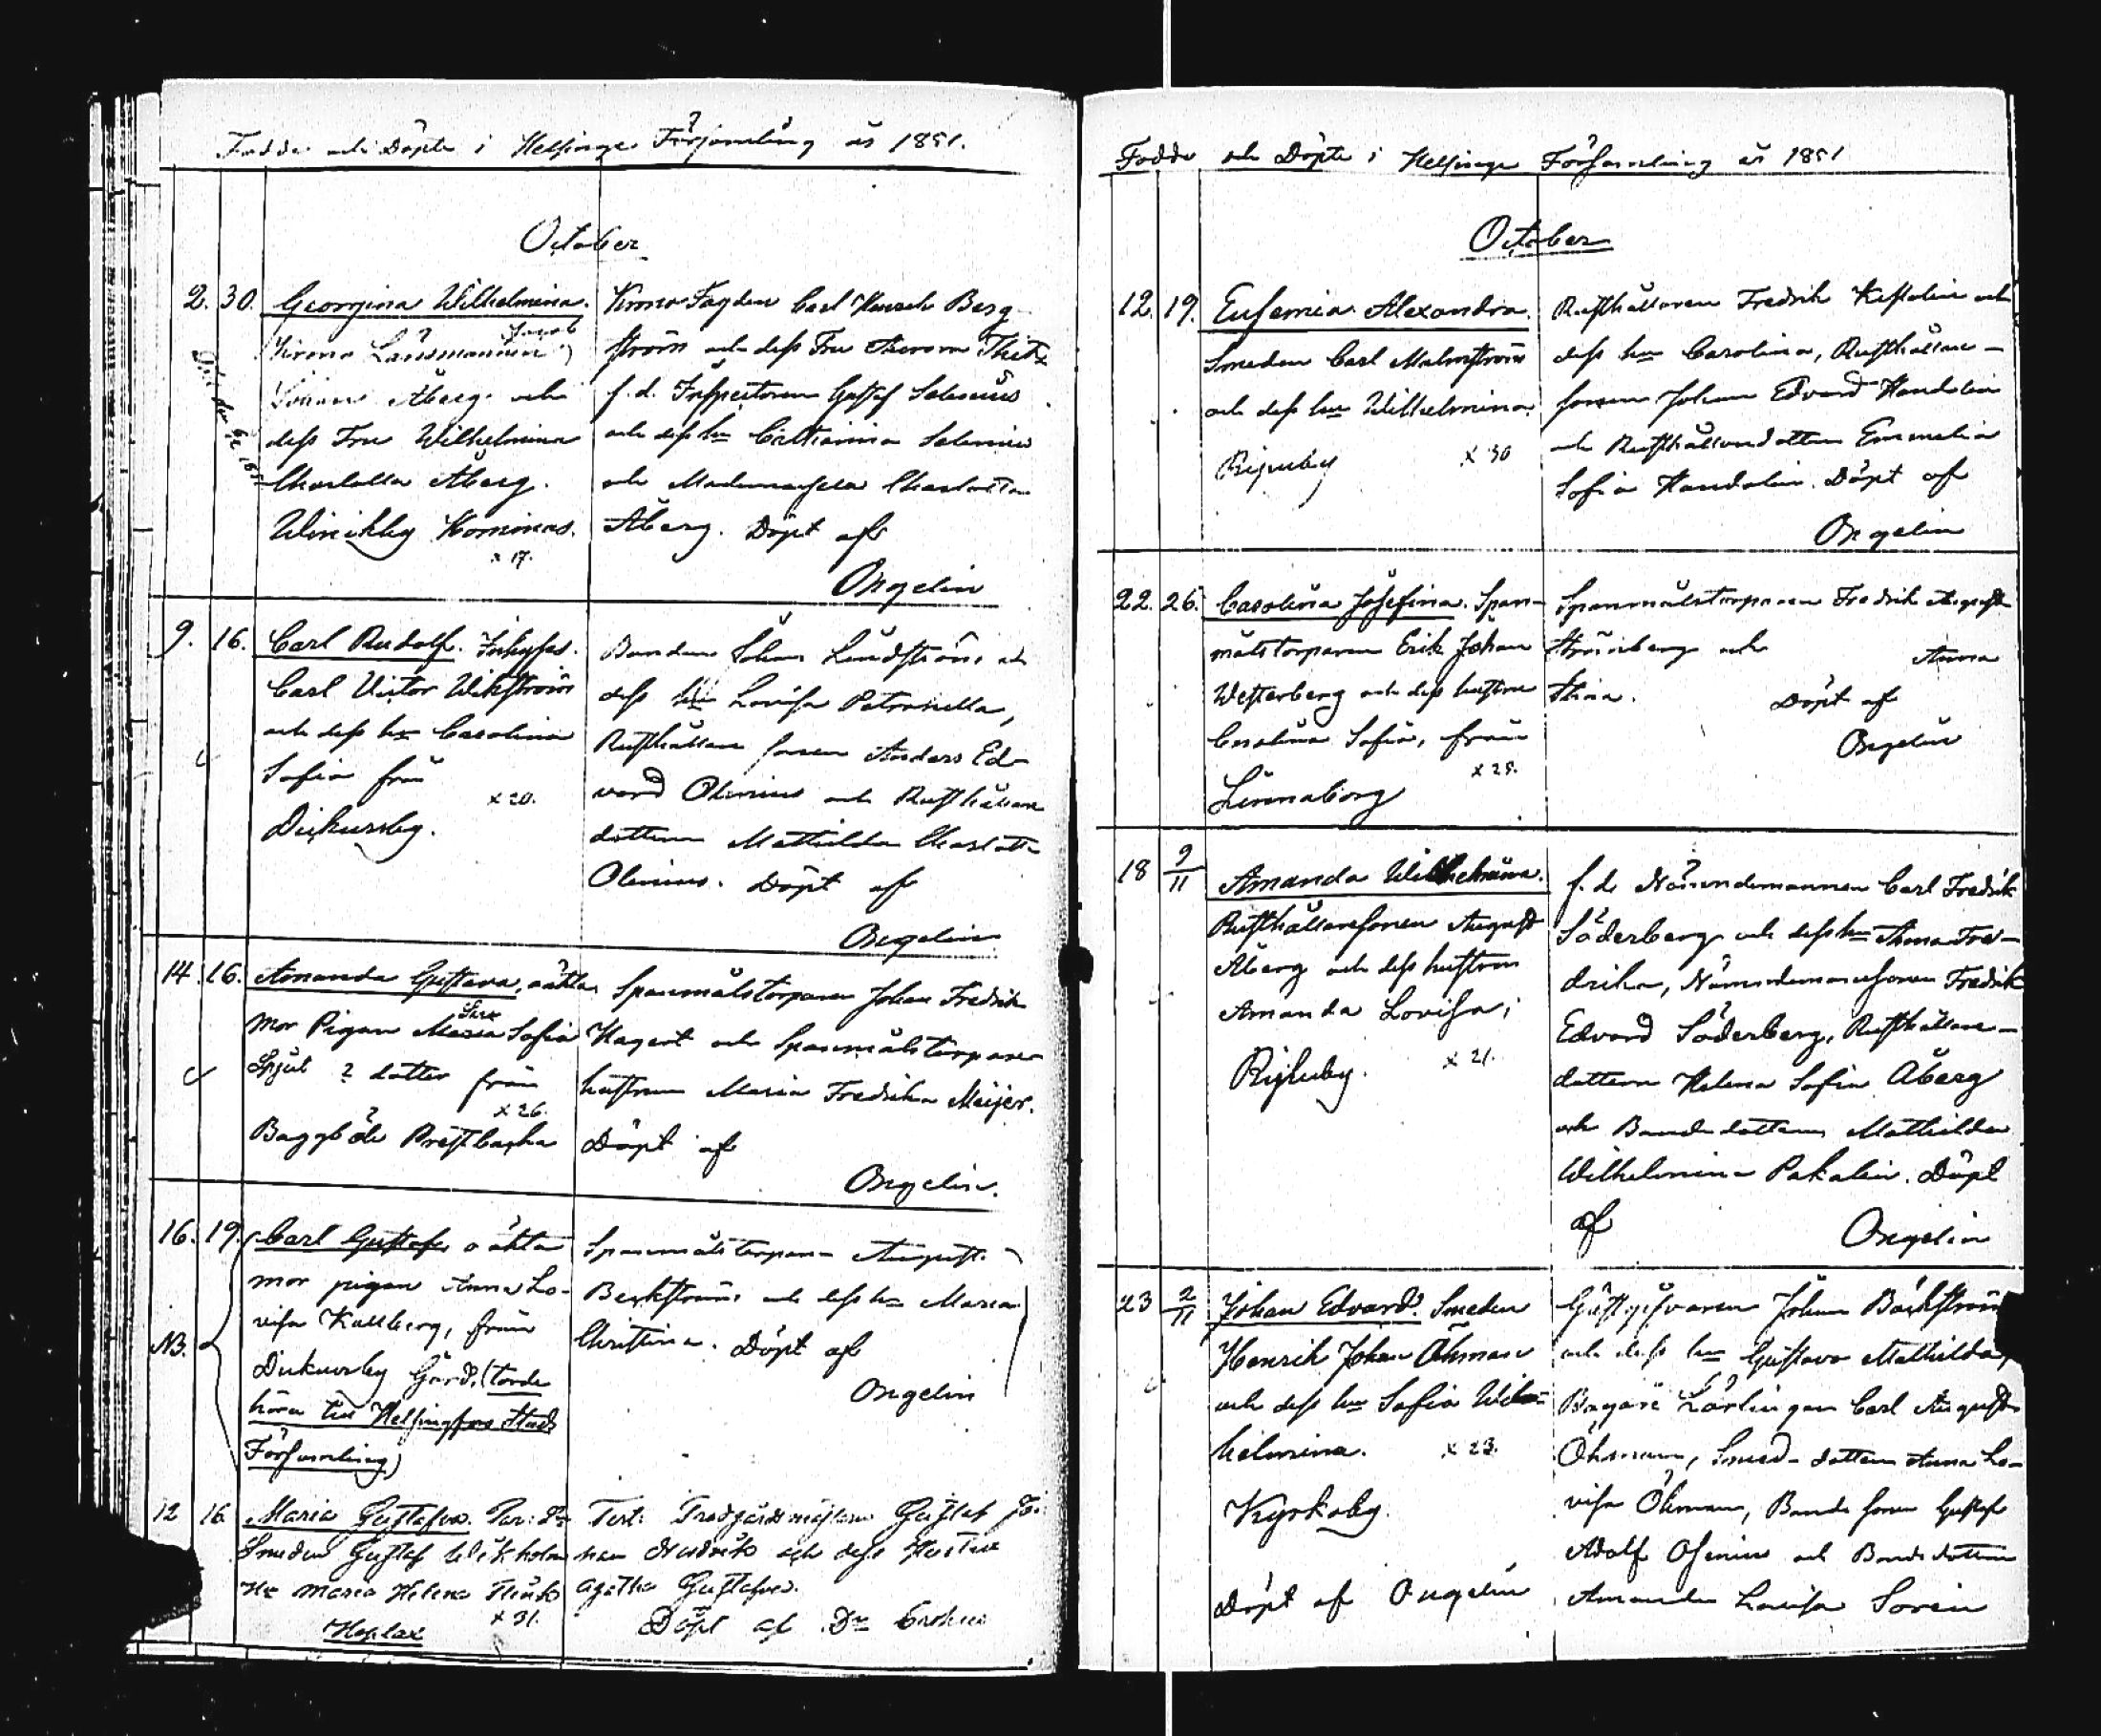 Födde och Döpte i Helsinge Församling år 1851.
October
2. 30. Georgina Wilhelmina.
Krono Länsmannen Jacob
Johan Åberg och
dess Fru Wilhelmina
Charlotta Åberg.
Winikby Kominas.
x 17.
Krono Fogden Carl Berg
ström och dess Fru
f. d. Inspectoren Gustaf Selenius
och dess hu Catharina Selenius
och Mademoiselle Charlotta
Åberg. Döpt af
Ongelin
9. 16. Carl Rudolf. Inhyses.
Carl Victor Wikström
och dess hu Carolina
Sofia från
x 20.
Dickursby.
Bonden Johan Lindström och
dess hu Lovisa Petronella,
Rusthållare sonen Anders Ed-
vard Olenius och Rusthållare
dottern Mathilda Charlotta
Olenius. Döpt af
Ongelin
14. 16. Amanda Gustava, oäkta
mor Pigan Maria Sofia
2 dotter från
x 26.
Baggböle Prestbacka
Spanmålstorparen Johan Fredrik
Hagert och Spanmålstorpare
hustrun Maria Fredrika Meijer.
Döpt af
Ongelin.
16. 19. Carl Gustaf, oäkta
mor pigan Anna Lo-
visa Kallberg, från
NB.
Dickursby Gård, (torde
höra till Helsingfors Stads
Församling)
Spanmålstorparen August
Beckström och dess hu Maria
Christina. Döpt af
Ongelin
12 16 Maria Gustafva. Par:
Smeden Gustaf Wikholm
Hu Maria Helena
x 31.
Hoplax
Test: Trädgårdsmästaren Gustaf Jo-
han och dess Hustru
Agatha Gustafva.
Döpt af Dr
Födde och Döpte i Helsinge Församling år 1851
October
12. 19. Eufemia Alexandra.
Smeden Carl Malmström
och dess hu Wilhelmina
x 30
Rusthållaren Fredrik och
dess hu Carolina, Rusthållare-
sonen Johan Edvard Handolin
och Rusthållaredottern Emmelia
Sofia Handolin. Döpt af
Ongelin
22. 26. Carolina Josefina. Span-
målstorparen Erik Johan
Westerberg och dess hustru
Carolina Sofia, från
x 25.
Linnaborg
Spanmålstorparen Fredrik August
Strömberg och Anna
Stina. Döpt af
Ongelin
18 9/11 Amanda Wilhelmina.
Rusthållaresonen August
Åberg och dess hustru
Amanda Lovisa,
x 21.
f. d. Nämndemannen Carl Fredrik
Söderberg och dess hu Anna Fred-
rika, Nämndemanssonen Fredrik
Edvard Söderberg, Rusthållare-
dottern Helena Sofia Åberg
och Bondedottern Mathilda
Wilhelmina Pakalin. Döpt
af
Ongelin
23 2/11 Johan Edvard. Smeden
Henrik Johan Öhman
och dess hu Sofia Wil-
helmina. x 23.
Kyrkoby.
Döpt af Ongelin
Gästgifvaren Johan Bäckström
och dess hu Gustava Mathilda,
Bagare Lärlingen Carl August
Öhman, Smed-dottern Anna Lo-
visa Öhman, Bonde sonen Gustaf
Adolf och Bondedottern
Amanda Lovisa Sorin